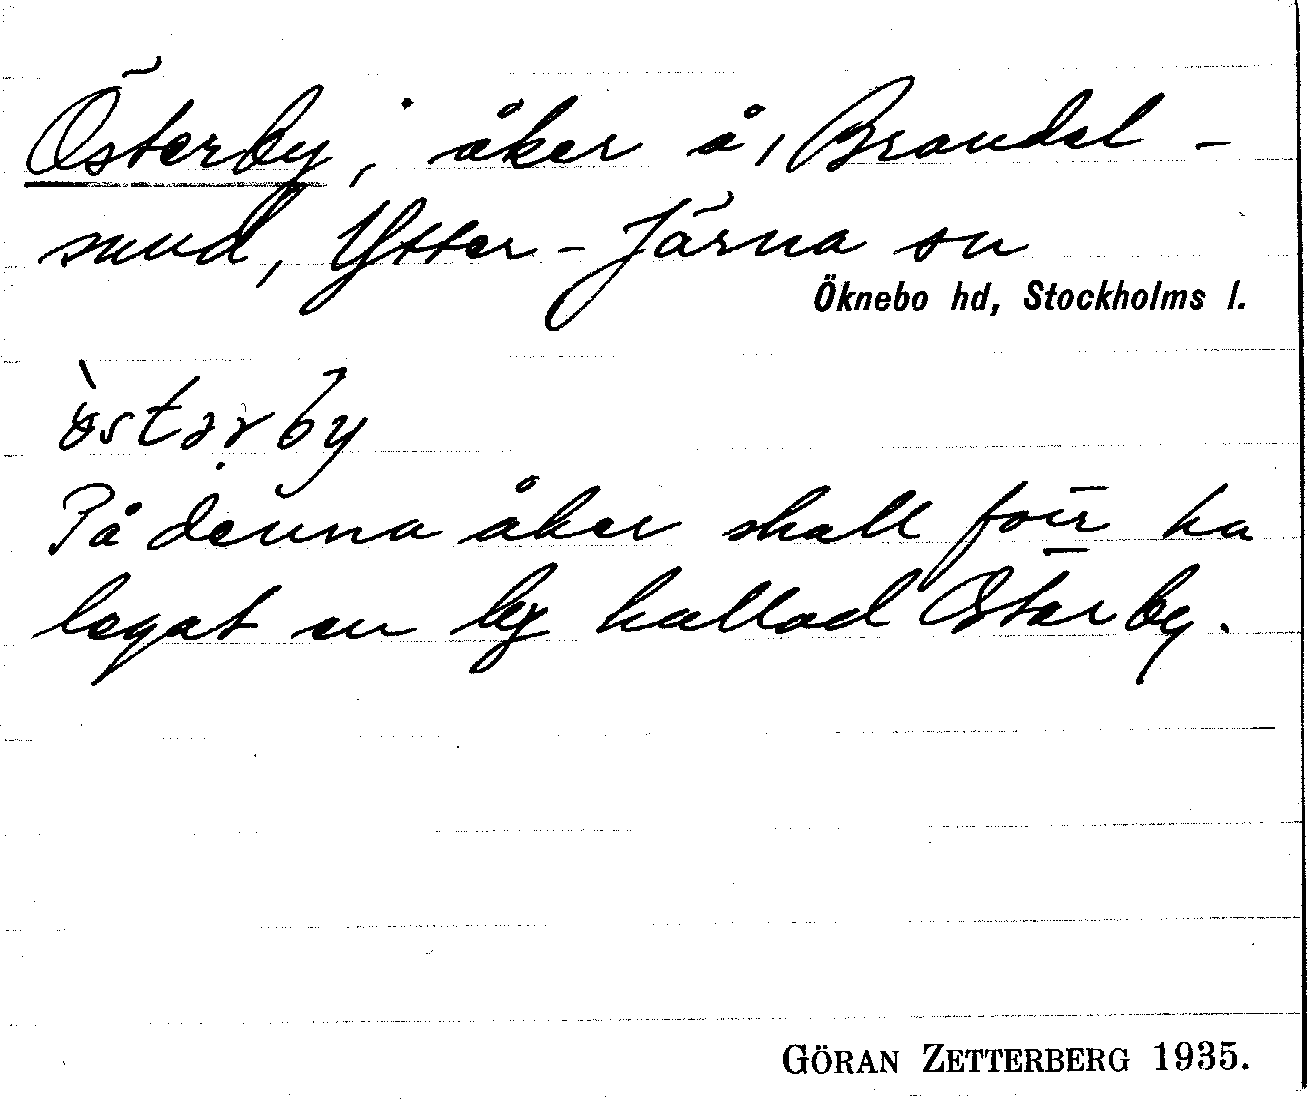 Österby, åker å, Brandal-
sund, Ytter-Järna sn
Öknebo hd, Stockholms l.
östərby
På denna åker skall förr ha
legat en by kallad Österby.
GÖRAN ZETTERBERG 1935.